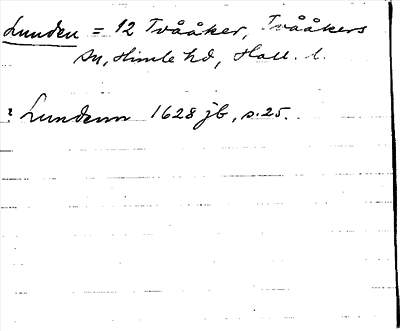 Lunden = 12 Tvååker, Tvååkers
sn, Himle hd, Hall. l.
? Lundenn 1628 jb, s. 25.